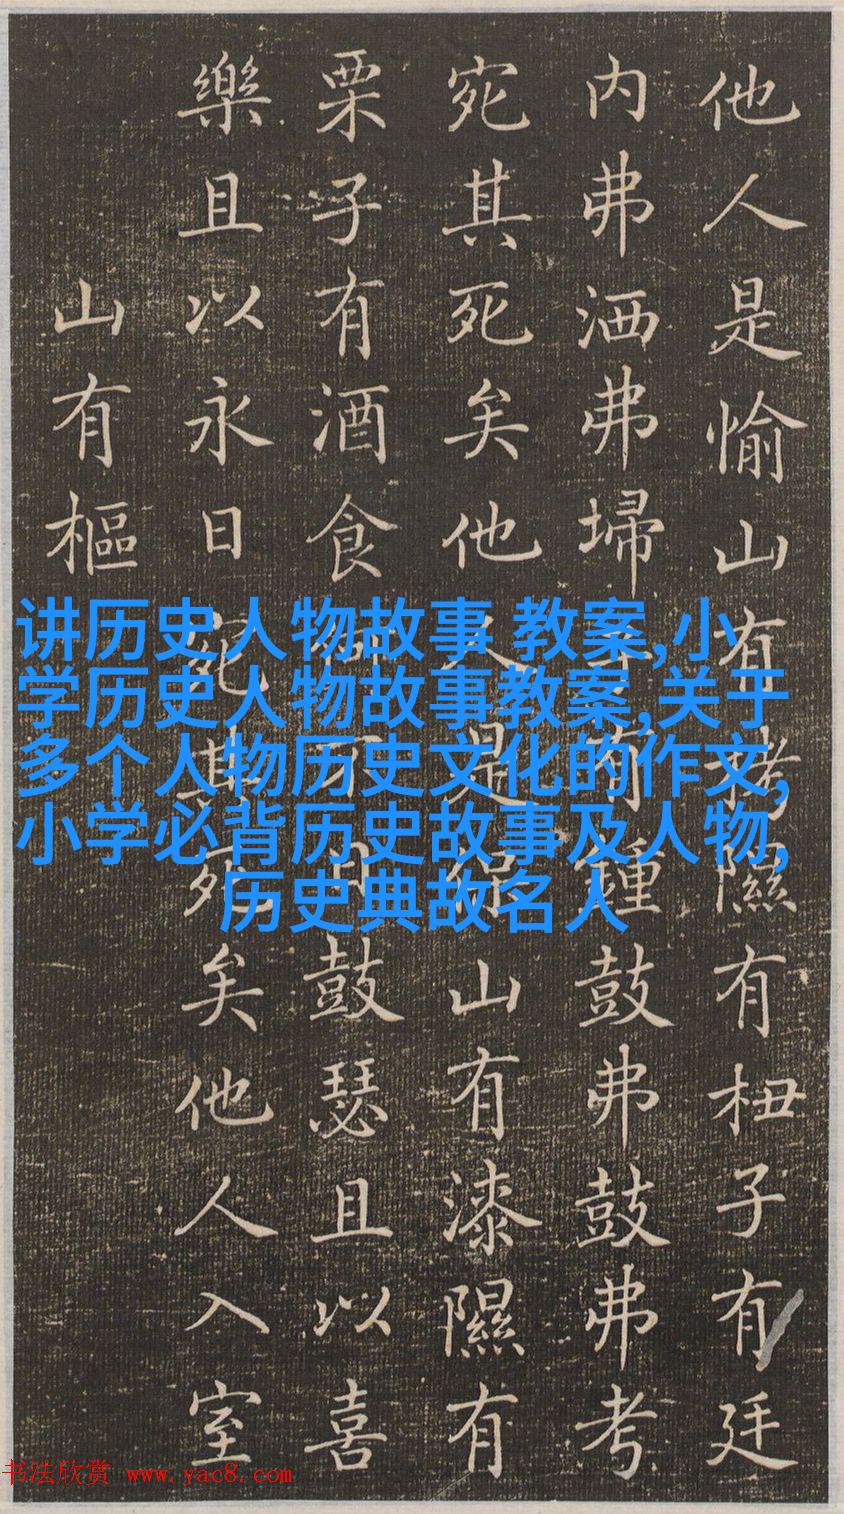 他人是愉山有栲隰有杻子有廷
内弗洒弗埽子有鍾鼓弗鼓弗考
宛其死矣他人是保山有漆隰有
栗子有酒食何不日鼓瑟且以喜
樂且以永日宛其死矣他人入室
山有樞
讲历史人物故事 教案,小
学历史人物故事教案,关于
多个人物历史文化的作文,
小学必背历史故事及人物,
历史典故名人
书法欣赏 www.yac8.com